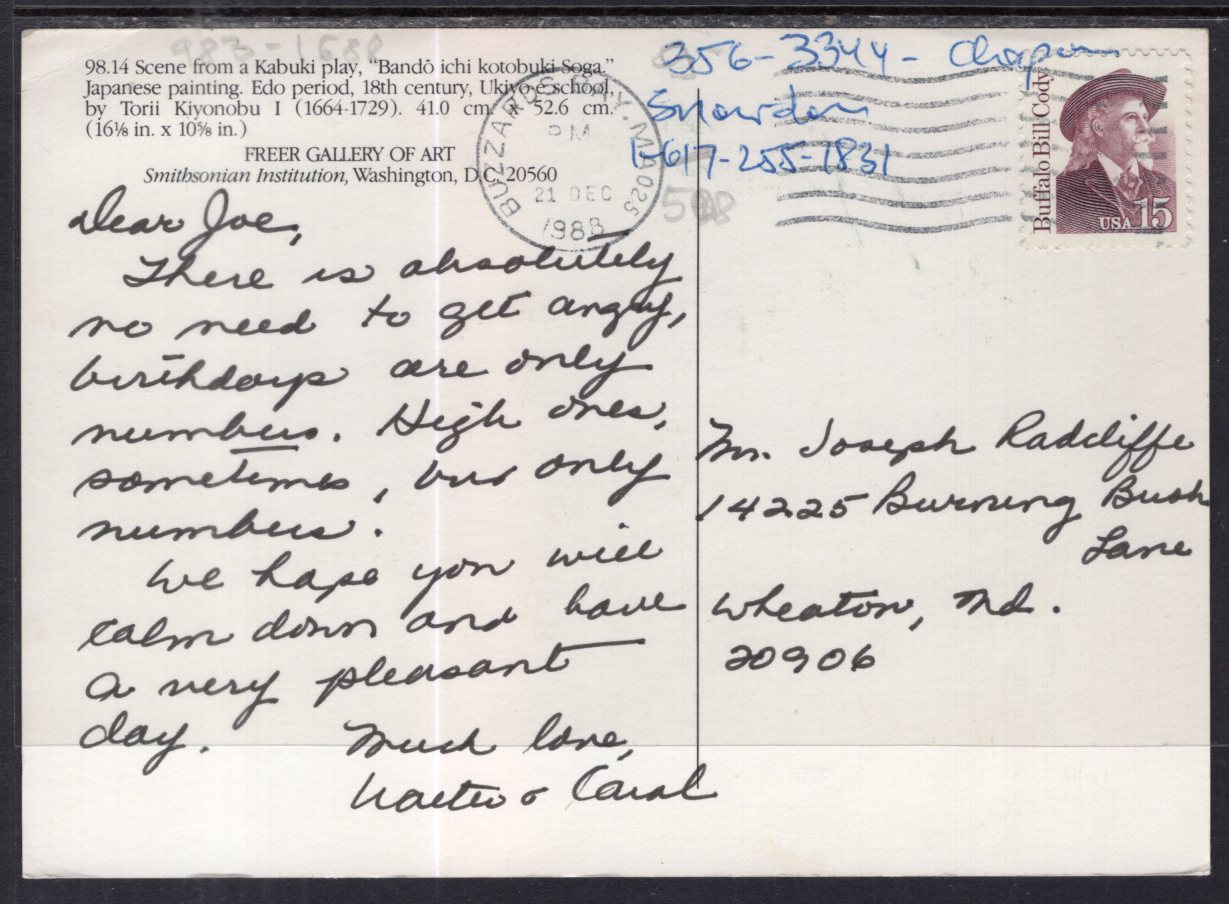 983-1688
98.14 Scene from a Kabuki play, "Bandō ichi kotobuki Soga."
Japanese painting. Edo period, 18th century, Ukiyo-e school,
by Torii Kiyonobu I (1664-1729). 41.0 cm 52.6 cm.
(16⅛ in. x 10⅝ in.)
FREER GALLERY OF ART
Smithsonian Institution, Washington, D.C. 20560
356-3344 -
Snowdon
1-617-255-7831
BUZZARDS BAY, MA 025
PM
21 DEC
1988
Buffalo Bill Cody
USA 15
Dear Joe,
There is absolutely
no need to get angry,
birthdays are only
numbers. High ones,
sometimes, but only
numbers.
We hope you will
calm down and have
a very pleasant
day.
Much love,
Walter & Carol
Mr. Joseph Radcliffe
14225 Burning Bush
Lane
Wheaton, Md.
20906